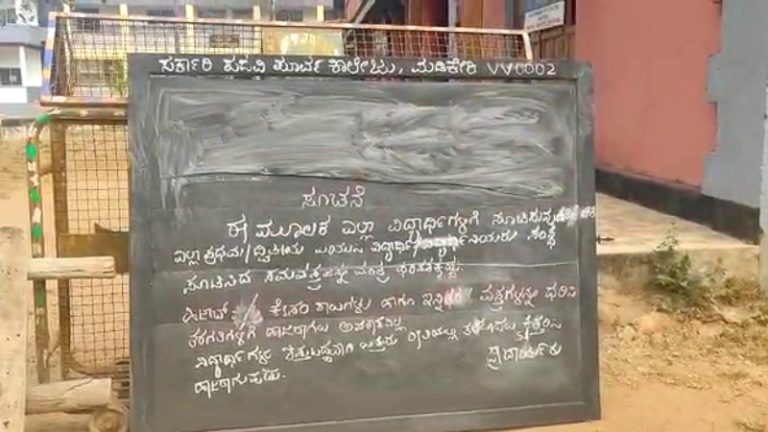 ಸರ್ಕಾರಿ ಪದವಿ ಪೂರ್ವ ಕಾಲೇಜು, ಮಡಿಕೇರಿ VV0002
ಸೂಚನೆ
ಈ ಮೂಲಕ ಎಲ್ಲಾ ವಿದ್ಯಾರ್ಥಿಗಳಿಗೆ ಸೂಚಿಸುವುದೇನೆಂದರೆ
ಎಲ್ಲಾ ಪ್ರಥಮ/ದ್ವಿತೀಯ ಪಿಯುಸಿ ವಿದ್ಯಾರ್ಥಿ/ವಿದ್ಯಾರ್ಥಿನಿಯರು ಸಂಸ್ಥೆ
ಸೂಚಿಸಿದ ಸಮವಸ್ತ್ರವನ್ನು ಮಾತ್ರ ಧರಿಸತಕ್ಕದ್ದು.
ಹಿಜಾಬ್ / ಕೇಸರಿ ಶಾಲುಗಳು ಹಾಗೂ ಇನ್ನಿತರ ವಸ್ತ್ರಗಳನ್ನು ಧರಿಸಿ
ತರಗತಿಗಳಿಗೆ ಹಾಜರಾಗಲು ಅವಕಾಶವಿಲ್ಲ
ವಿದ್ಯಾರ್ಥಿಗಳು ಶಿಸ್ತುಬದ್ಧವಾಗಿ ಉತ್ತಮ ರೀತಿಯಲ್ಲಿ
ಹಾಜರಾಗುವುದು.
ಪ್ರಾಚಾರ್ಯರು